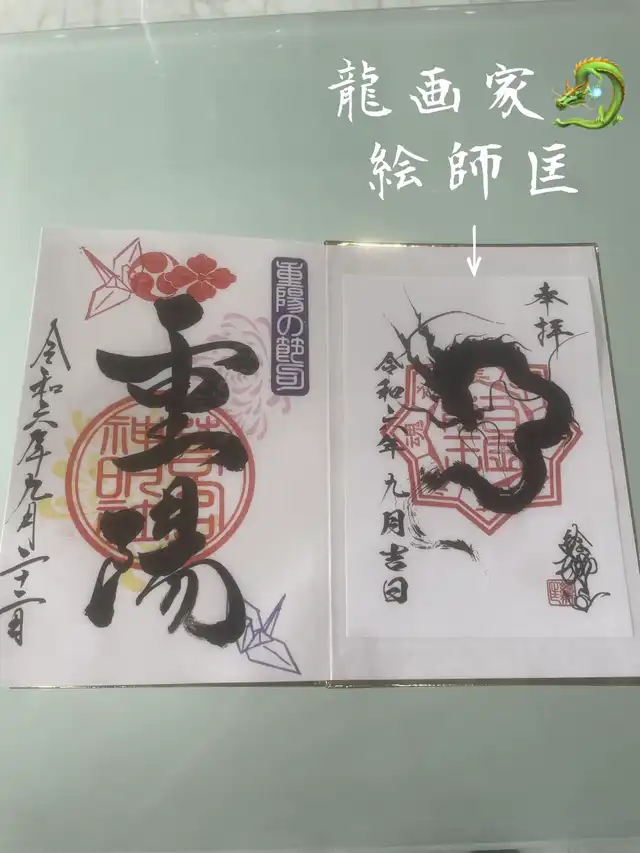 龍画家
絵師匡
重陽の節句
重陽
若宮神明社
令和六年九月二十二日
奉拝
令和六年 九月吉日